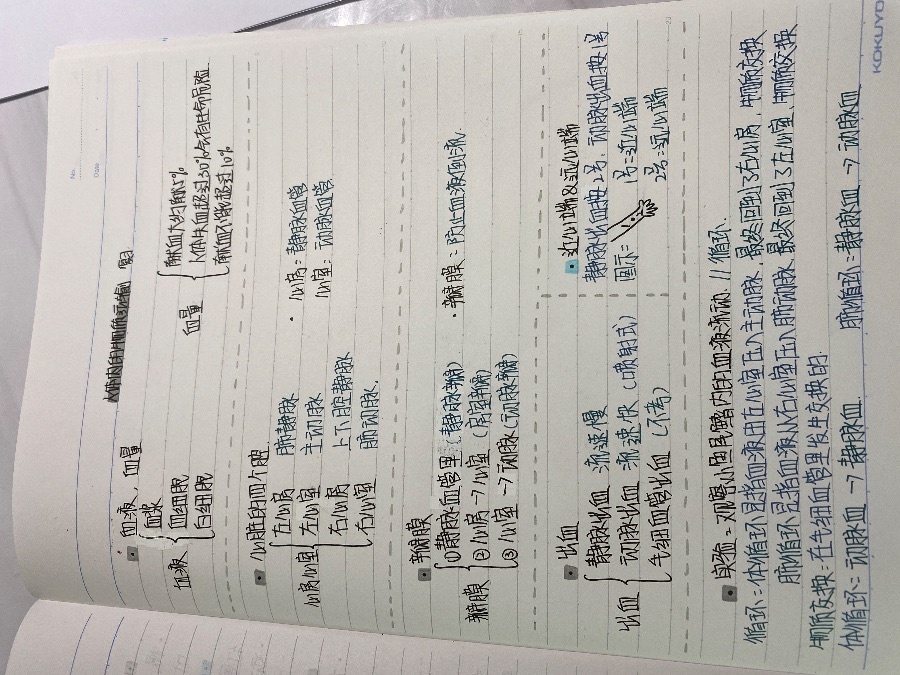 No.
Date
体内的物质运输
血液，血量
血液 血浆
血细胞
白细胞
血量 献血大约献5%
人体失血超过30%会有生命危险
献血不能超过10%
心脏的四个腔
心房心室 左心房 肺静脉
左心室 主动脉
右心房 上下腔静脉
右心室 肺动脉
· 心房：静脉血管
心室：动脉血管
瓣膜
瓣膜 ①静脉血管里（静脉瓣）
②心房→心室（房室瓣）
③心室→动脉（动脉瓣）
· 瓣膜：防止血液倒流
出血
出血 静脉出血 流速慢
动脉出血 流速快（喷射式）
毛细血管出血（不考）
近心端&远心端
静脉出血按2号，动脉出血按1号
图示= 1号=近心端
2号=远心端
实验=观察小鱼尾鳍内的血液流动 // 循环
循环=体循环是指血液由左心室压入主动脉 最终回到了右心房，物质交换
肺循环是指血液从右心室压入肺动脉 最终回到了左心室，物质交换
物质交换=在毛细血管里发生交换的
体循环=动脉血→静脉血 肺循环=静脉血→动脉血
KOKUYO